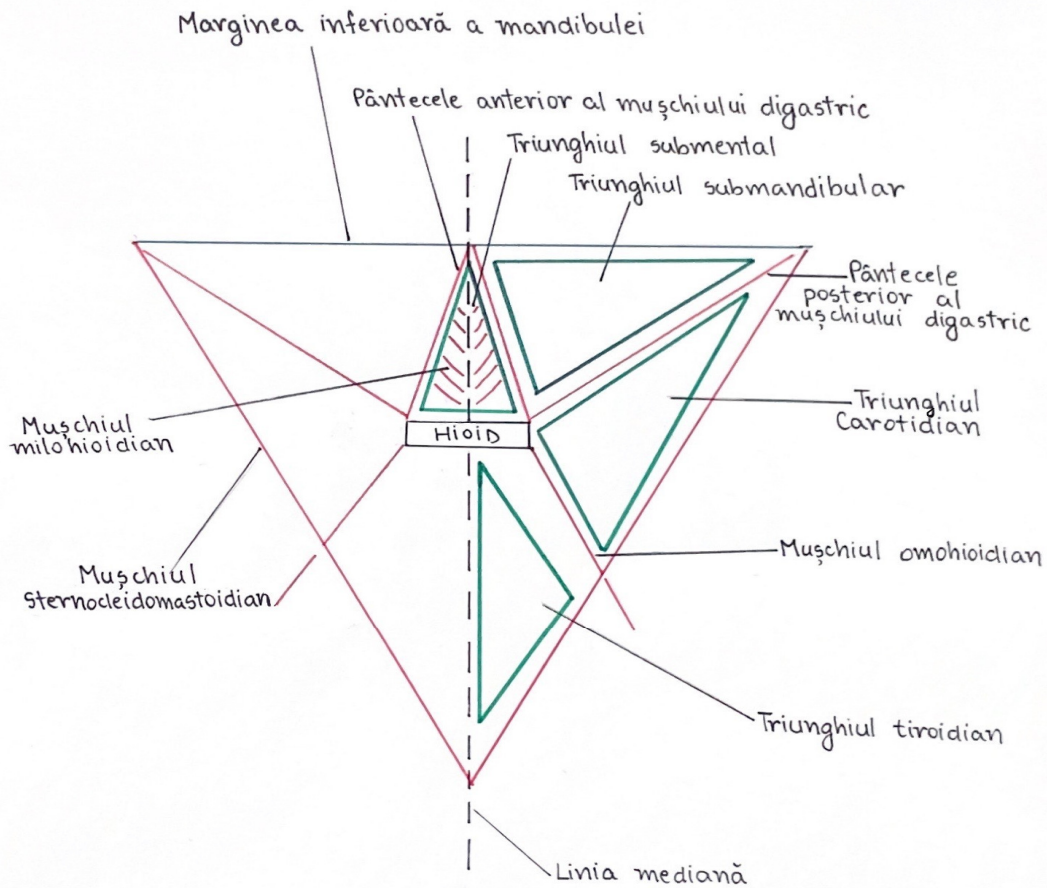 Marginea inferioară a mandibulei
Pântecele anterior al mușchiului digastric
Triunghiul submental
Triunghiul submandibular
Pântecele
posterior al
mușchiului digastric
Triunghiul
Carotidian
Mușchiul
milohioidian
HIOID
Mușchiul omohioidian
Mușchiul
Sternocleidomastoidian
Triunghiul tiroidian
Linia mediană